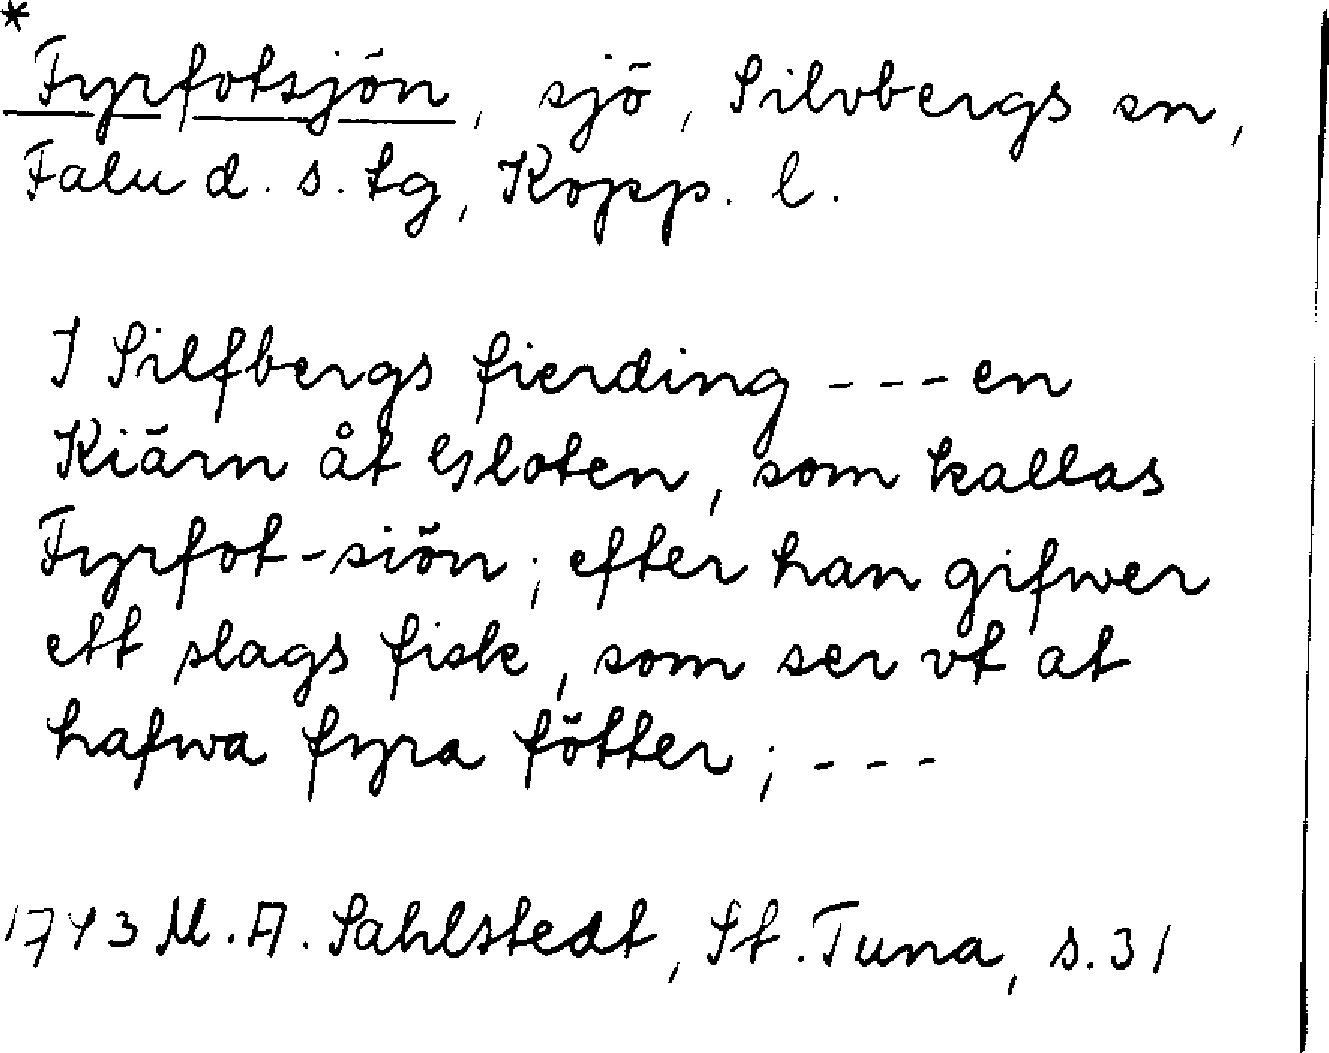 *
Fyrfotsjön, sjö, Silvbergs sn,
Falu d. s. tg, Kopp. l.
I Silfbergs fierding --- en
Kiärn åt Gloten, som kallas
Fyrfot-siön; efter han gifwer
ett slags fisk, som ser vt at
hafwa fyra fötter; ---
1743 M. A. Sahlstedt, St. Tuna, s. 31